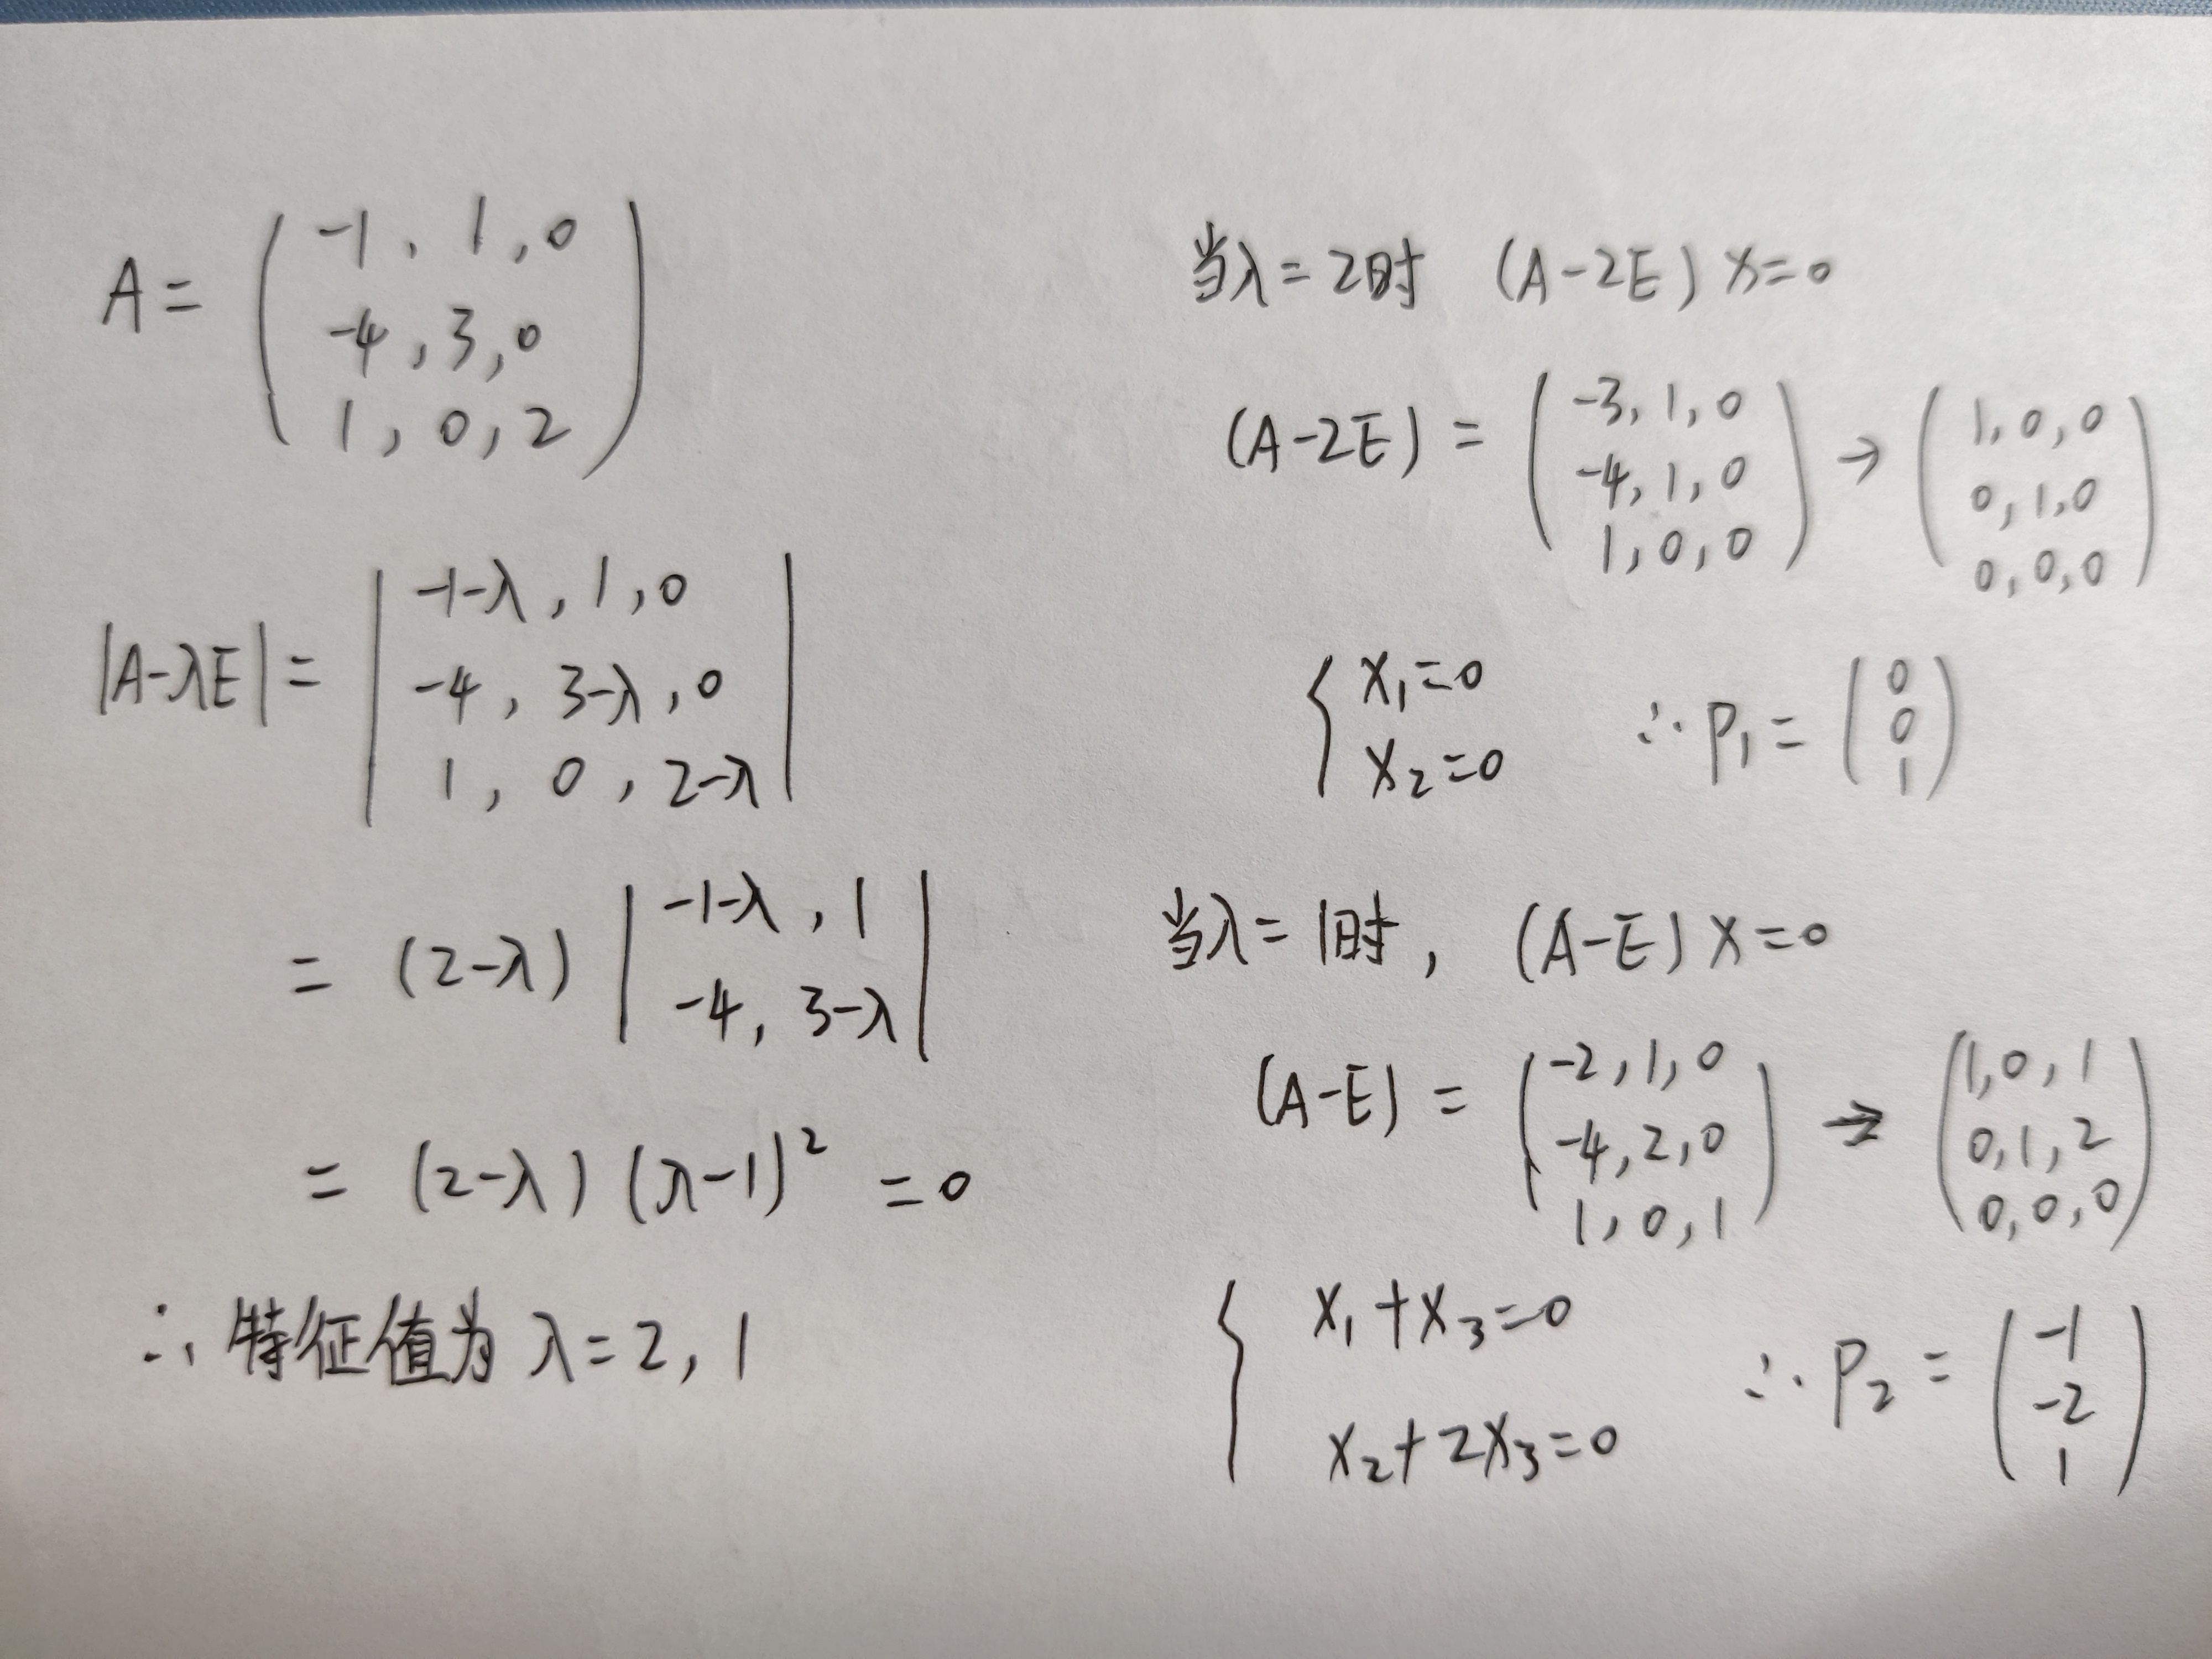 A = ( -1, 1, 0
-4, 3, 0
1, 0, 2 )
|A-λE| = | -1-λ, 1, 0
-4, 3-λ, 0
1, 0, 2-λ |
= (2-λ) | -1-λ, 1
-4, 3-λ |
= (2-λ) (λ-1)² = 0
∴ 特征值为 λ=2, 1
当λ=2时 (A-2E) x=0
(A-2E) = ( -3, 1, 0
-4, 1, 0
1, 0, 0 ) → ( 1, 0, 0
0, 1, 0
0, 0, 0 )
{ x₁=0
x₂=0 ∴ P₁ = ( 0
0
1 )
当λ=1时, (A-E) x=0
(A-E) = ( -2, 1, 0
-4, 2, 0
1, 0, 1 ) → ( 1, 0, 1
0, 1, 2
0, 0, 0 )
{ x₁+x₃=0
x₂+2x₃=0 ∴ P₂ = ( -1
-2
1 )